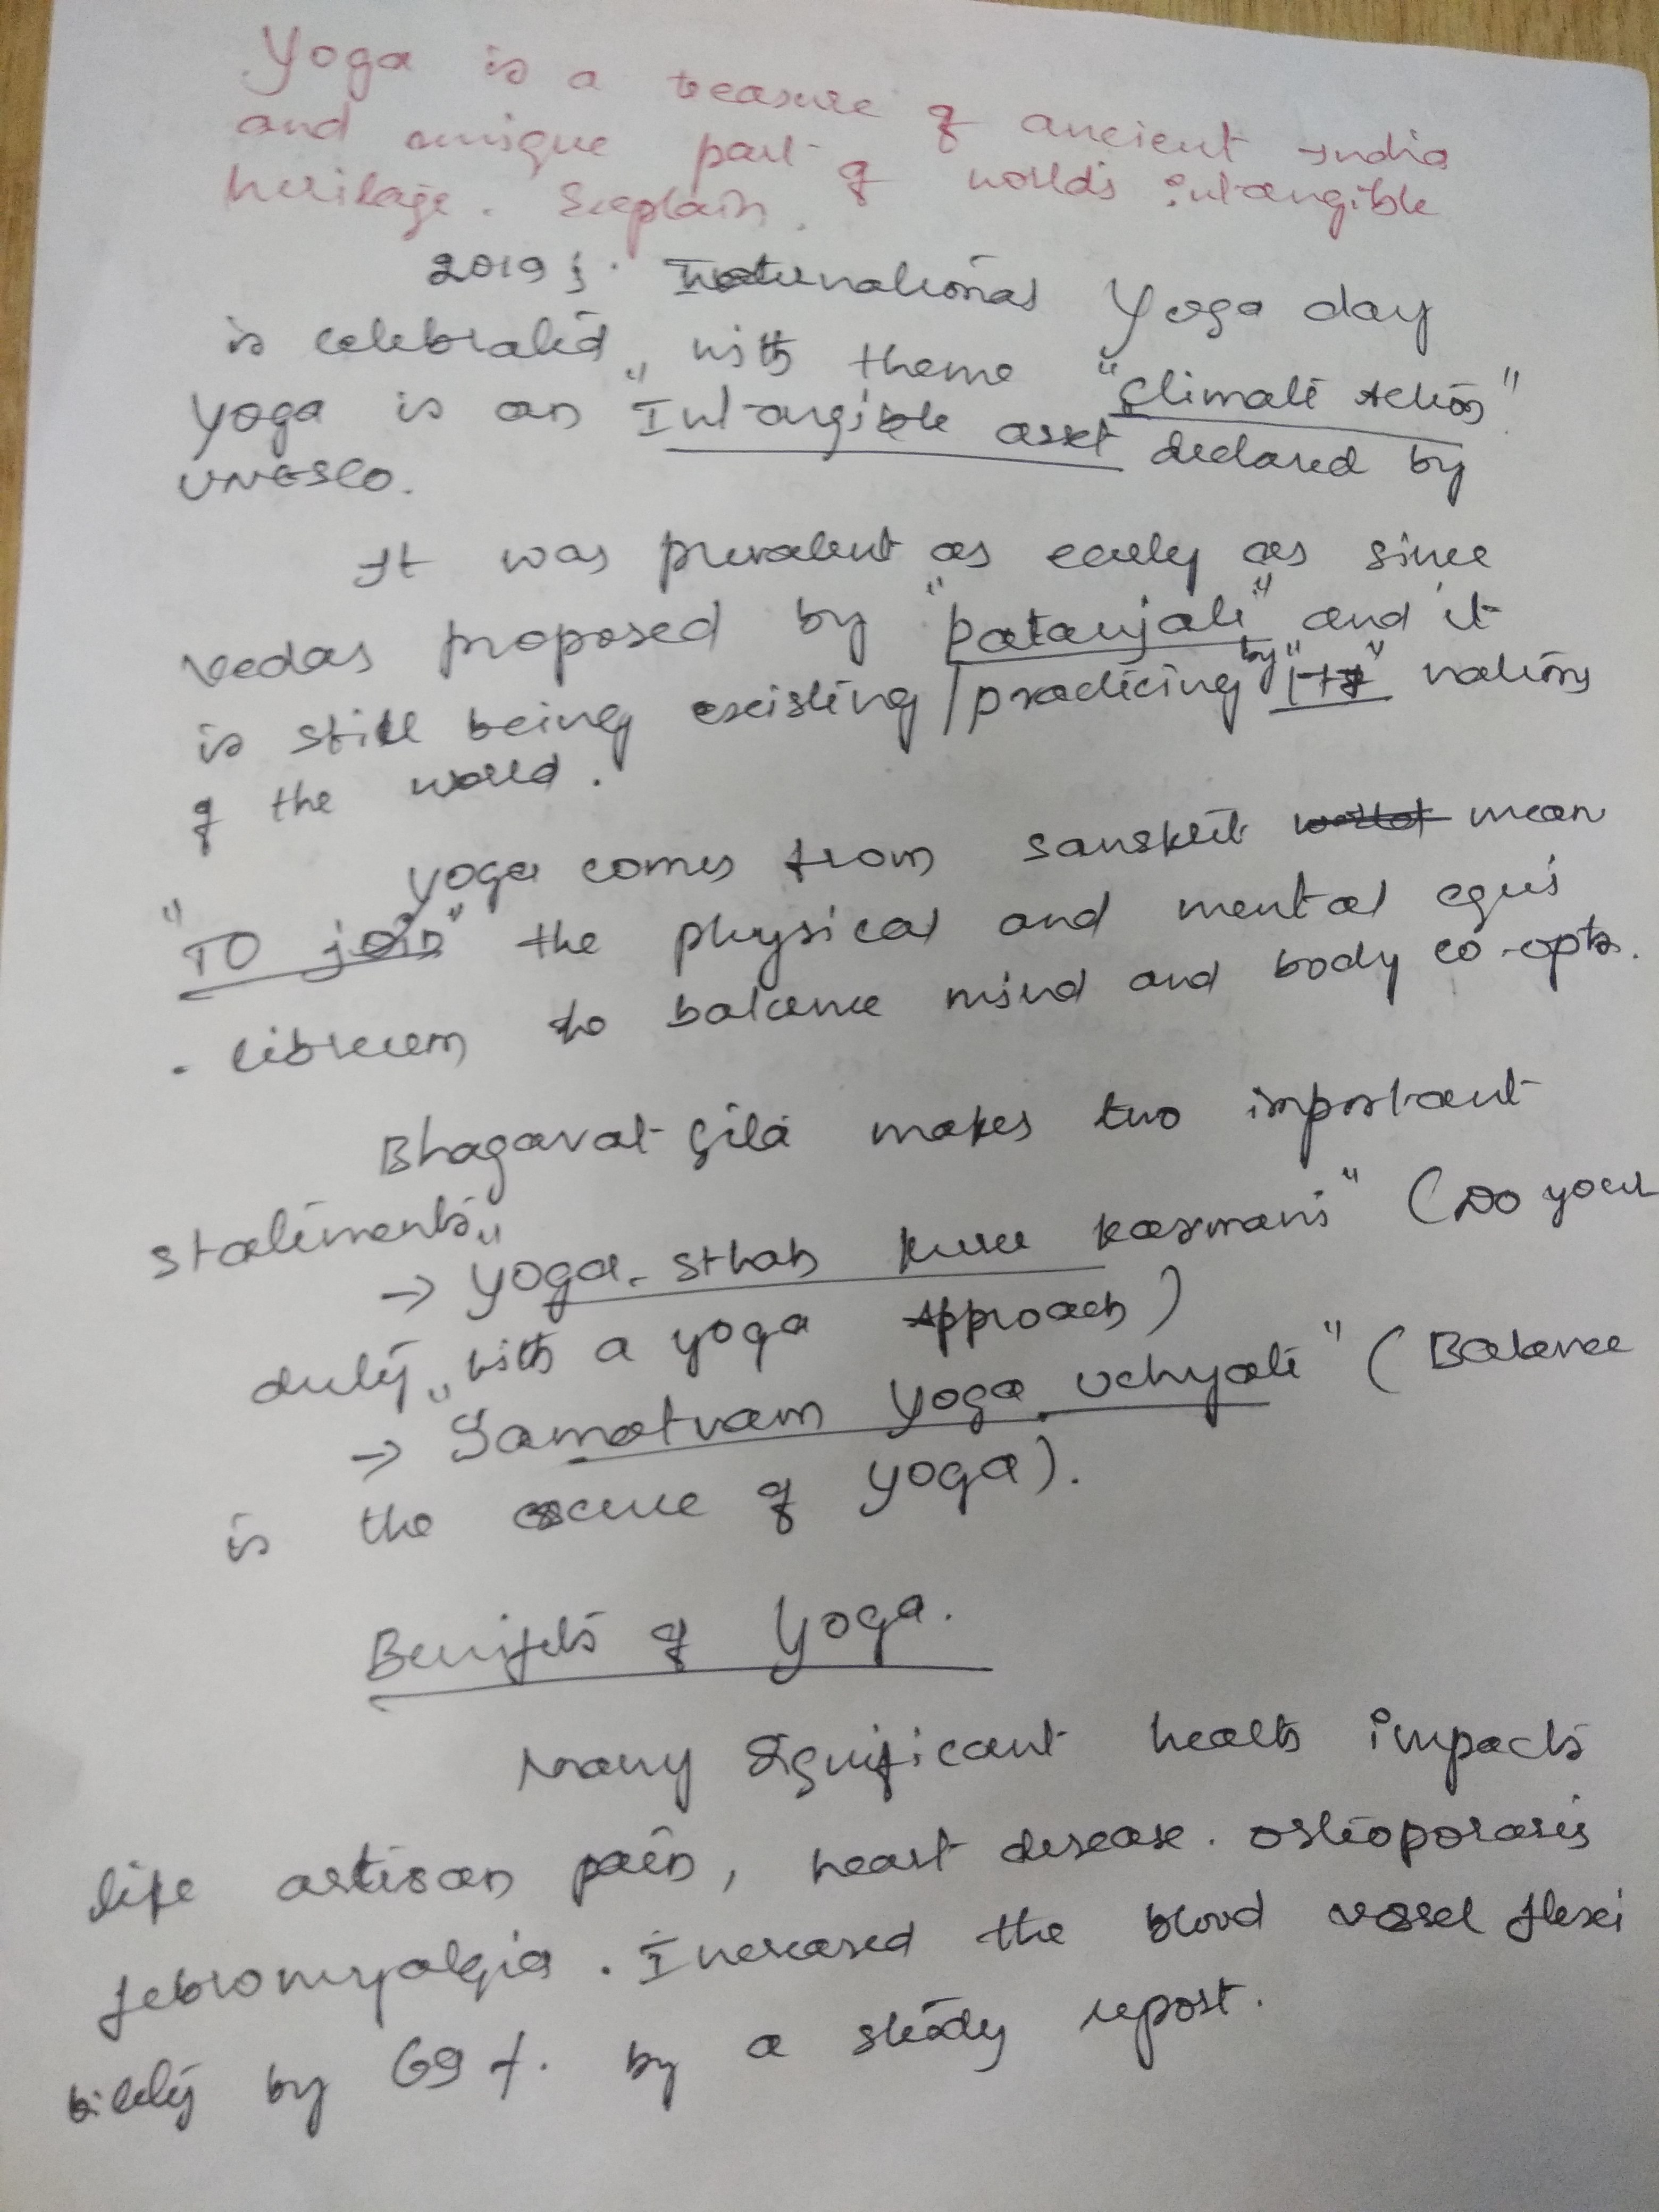 Yoga is a treasure of ancient India
and unique part of world's intangible
heritage. Explain.
2019's International Yoga day
is celebrated with theme "Climate Action".
Yoga is an "Intangible asset declared by
UNESCO.
It was prevalent as early as since
vedas proposed by "Patanjali" and it
is still being existing / practicing by "177" nations
of the world.
Yoga comes from sanskrit mean
"TO join" the physical and mental equi
- librium to balance mind and body co-opts.
Bhagavat Gita makes two important
statements
→ "Yoga-sthah kuru karmani" (Do your
duty with a yoga Approach)
→ "Samatvam Yoga uchyate" (Balance
is the essence of yoga).
Benifits of Yoga.
Many Significant health impacts
like artisan pain, heart disease. osteoporasis
febromyalgia. Increased the blood vessel flexi
bility by 69 %. by a study report.